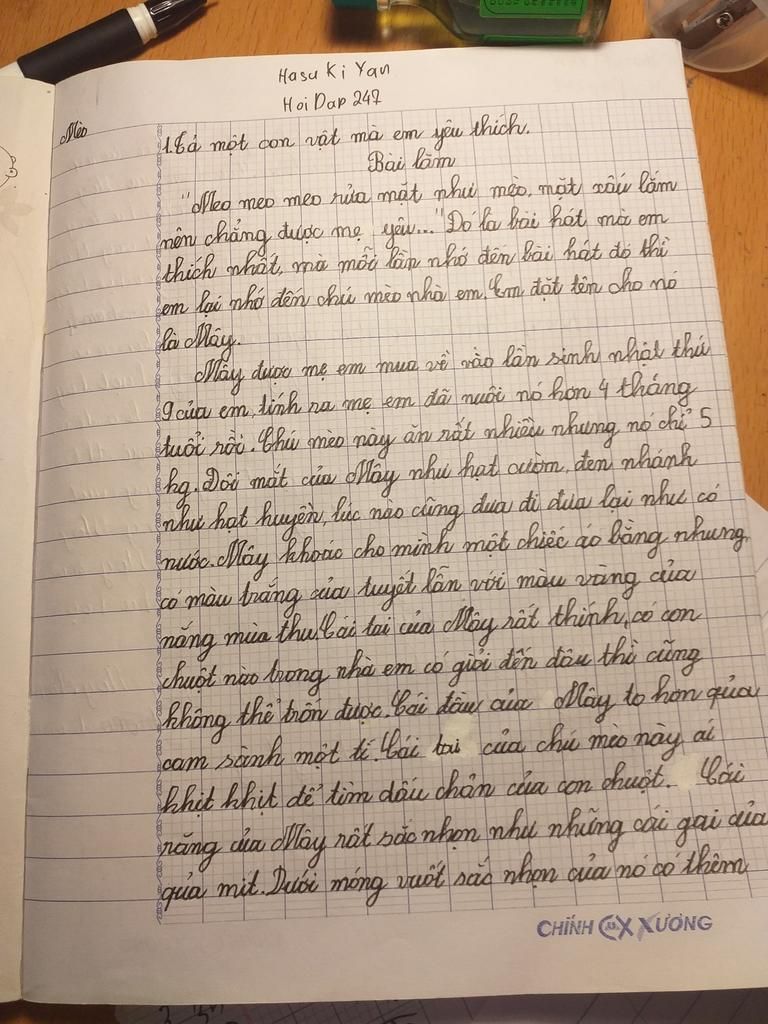 Hasu Ki Yan
Hoi Dap 247
Mèo
1. Tả một con vật mà em yêu thích.
Bài làm
"Meo meo meo rửa mặt như mèo, mặt xấu lắm
nên chẳng được mẹ yêu..." Đó là bài hát mà em
thích nhất, mà mỗi lần nhớ đến bài hát đó thì
em lại nhớ đến chú mèo nhà em. Em đặt tên cho nó
là Mây.
Mây được mẹ em mua về vào lần sinh nhật thứ
9 của em, tính ra mẹ em đã nuôi nó hơn 4 tháng
tuổi rồi. Chú mèo này ăn rất nhiều nhưng nó chỉ 5
kg. Đôi mắt của Mây như hạt cườm, đen nhánh
như hạt huyền, lúc nào cũng đưa đi đưa lại như có
nước. Mây khoác cho mình một chiếc áo bằng nhung,
có màu trắng của tuyết lẫn với màu vàng của
nắng mùa thu. Cái tai của Mây rất thính, có con
chuột nào trong nhà em có giỏi đến đâu thì cũng
không thể trốn được. Cái đầu của Mây to hơn qủa
cam sành một tí. Cái tai của chú mèo này, ai
khịt khịt để tìm dấu chân của con chuột. Cái
răng của Mây rất sắc nhọn như những cái gai của
qủa mít. Dưới móng vuốt sắc nhọn của nó có thêm
CHÍNH CX XƯƠNG